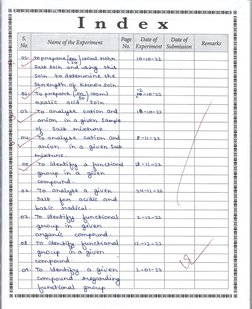 Index
S. No. Name of the Experiment Page No. Date of Experiment Date of Submission Remarks
01. To prepare 100ml Mohr 10-10-22
Salt Soln and using this
Soln to determine the
Strength of Kmno4 Soln
02. To prepare 100ml -10-22
oxalic acid Soln
03. To analyse cation and 18-10-22
anion in a given Sample
of Salt mixture
04. To analyse cation and 8-11-22
anion in a given Salt
mixture
05. To identify a functional -11-22
group in a given
compound.
06. To analyse a given 24-11-22
Salt for acidic and
basic radical.
07. To identify functional 2-12-22
group in given
organic compound.
08. To identify functional 12-12-22
group in a given
compound.
09. To identify a given 2-01-23
compound regarding
functional group